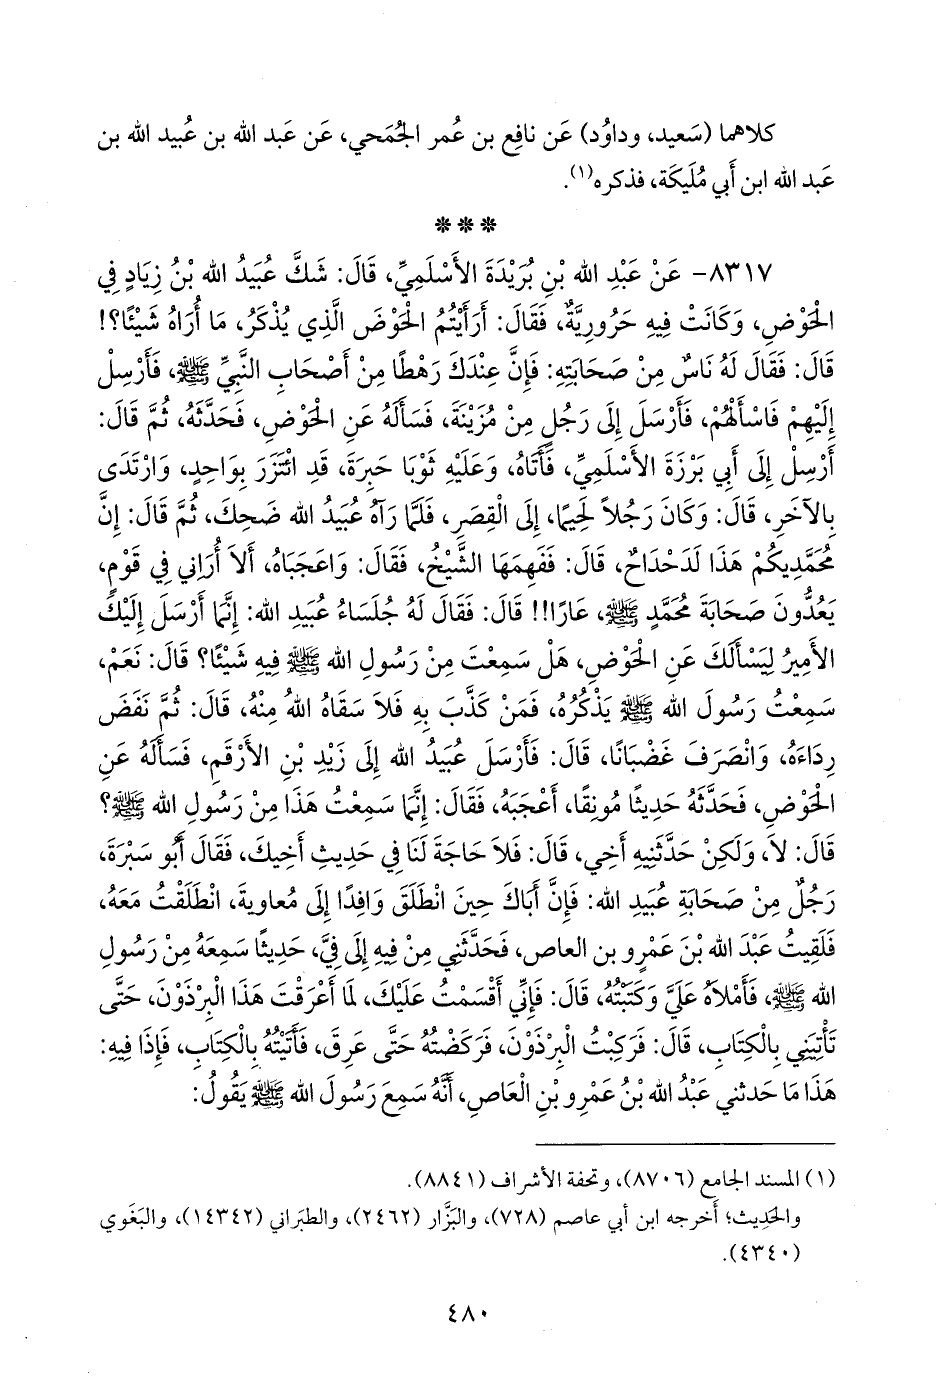 كلاهما (سَعيد، وداوُد) عَن نافِع بن عُمر الجُمَحي، عَن عَبد الله بن عُبيد الله بن
عَبد الله ابن أَبي مُلَيكَة، فذكره(١).
***
٨٣١٧- عَنْ عَبْدِ الله بْنِ بُرَيْدَةَ الأَسْلَمِيِّ، قَالَ: شَكَّ عُبَيْدُ الله بْنُ زِيَادٍ فِي
الْحَوْضِ، وَكَانَتْ فِيهِ حَرُورِيَّةٌ، فَقَالَ: أَرَأَيْتُمُ الْحَوْضَ الَّذِي يُذْكَرُ، مَا أُرَاهُ شَيْئًا؟!
قَالَ: فَقَالَ لَهُ نَاسٌ مِنْ صَحَابَتِهِ: فَإِنَّ عِنْدَكَ رَهْطًا مِنْ أَصْحَابِ النَّبِيِّ ﷺ، فَأَرْسِلْ
إِلَيْهِمْ فَاسْأَلْهُمْ، فَأَرْسَلَ إِلَى رَجُلٍ مِنْ مُزَيْنَةَ، فَسَأَلَهُ عَنِ الْحَوْضِ، فَحَدَّثَهُ، ثُمَّ قَالَ:
أَرْسِلْ إِلَى أَبِي بَرْزَةَ الأَسْلَمِيِّ، فَأَتَاهُ، وَعَلَيْهِ ثَوْبَا حِبَرَةَ، قَدِ ائْتَزَرَ بِوَاحِدٍ، وَارْتَدَى
بِالآخَرِ، قَالَ: وَكَانَ رَجُلاً لَحِيمًا، إِلَى الْقِصَرِ، فَلَمَّا رَآهُ عُبَيْدُ الله ضَحِكَ، ثُمَّ قَالَ: إِنَّ
مُحَمَّدِيَّكُمْ هَذَا لَدَحْدَاحٌ، قَالَ: فَفَهِمَهَا الشَّيْخُ، فَقَالَ: وَاعَجَبَاهُ، أَلاَ أُرَانِي فِي قَوْمٍ،
يَعُدُّونَ صَحَابَةَ مُحَمَّدٍ ﷺ، عَارًا!! قَالَ: فَقَالَ لَهُ جُلَسَاءُ عُبَيْدِ الله: إِنَّمَا أَرْسَلَ إِلَيْكَ
الأَمِيرُ لِيَسْأَلَكَ عَنِ الْحَوْضِ، هَلْ سَمِعْتَ مِنْ رَسُولِ الله ﷺ فِيهِ شَيْئًا؟ قَالَ: نَعَمْ،
سَمِعْتُ رَسُولَ الله ﷺ يَذْكُرُهُ، فَمَنْ كَذَّبَ بِهِ فَلاَ سَقَاهُ اللهُ مِنْهُ، قَالَ: ثُمَّ نَفَضَ
رِدَاءَهُ، وَانْصَرَفَ غَضْبَانًا، قَالَ: فَأَرْسَلَ عُبَيْدُ الله إِلَى زَيْدِ بْنِ الأَرْقَمِ، فَسَأَلَهُ عَنِ
الْحَوْضِ، فَحَدَّثَهُ حَدِيثًا مُونِقًا، أَعْجَبَهُ، فَقَالَ: إِنَّمَا سَمِعْتُ هَذَا مِنْ رَسُولِ الله ﷺ؟
قَالَ: لاَ، وَلَكِنْ حَدَّثَنِيهِ أَخِي، قَالَ: فَلاَ حَاجَةَ لَنَا فِي حَدِيثِ أَخِيكَ، فَقَالَ أَبُو سَبْرَةَ،
رَجُلٌ مِنْ صَحَابَةِ عُبَيْدِ الله: فَإِنَّ أَبَاكَ حِينَ انْطَلَقَ وَافِدًا إِلَى مُعَاوِيةَ، انْطَلَقْتُ مَعَهُ،
فَلَقِيتُ عَبْدَ الله بْنَ عَمْرِو بن العاص، فَحَدَّثَنِي مِنْ فِيهِ إِلَى فِيَّ، حَدِيثًا سَمِعَهُ مِنْ رَسُولِ
الله ﷺ، فَأَمْلاَهُ عَلَيَّ وَكَتَبْتُهُ، قَالَ: فَإِنِّي أَقْسَمْتُ عَلَيْكَ، لَمَا أَعْرَقْتَ هَذَا الْبِرْذَوْنَ، حَتَّى
تَأْتِيَنِي بِالْكِتَابِ، قَالَ: فَرَكِبْتُ الْبِرْذَوْنَ، فَرَكَضْتُهُ حَتَّى عَرِقَ، فَأَتَيْتُهُ بِالْكِتَابِ، فَإِذَا فِيهِ:
هَذَا مَا حَدثني عَبْدُ الله بْنُ عَمْرِو بْنِ الْعَاصِ، أَنَّهُ سَمِعَ رَسُولَ الله ﷺ يَقُولُ:
(١) المسند الجامع (٨٧٠٦)، وتحفة الأشراف (٨٨٤١).
والحَدِيث؛ أَخرجه ابن أَبي عاصم (٧٢٨)، والبَزَّار (٢٤٦٢)، والطبَراني (١٤٣٤٢)، والبَغَوي
(٤٣٤٠).
٤٨٠